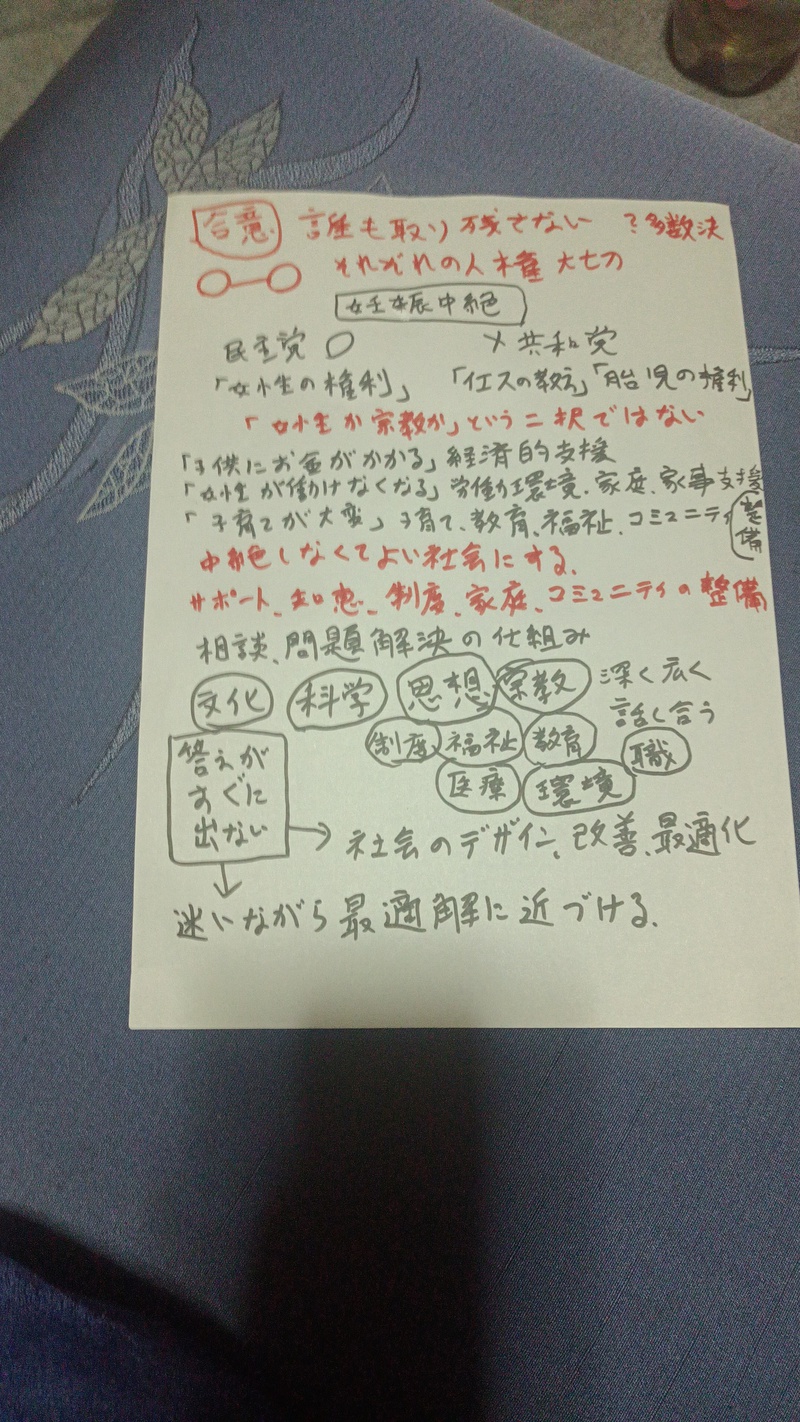 合意 誰も取り残さない ?多数決
それぞれの人権 大切
妊娠中絶
民主党 〇 × 共和党
「女性の権利」 「イエスの教え」「胎児の権利」
「女性か宗教か」という二択ではない
「子供にお金がかかる」経済的支援
「女性が働けなくなる」労働環境、家庭、家事支援
「子育てが大変」子育て、教育、福祉、コミュニティ 整備
中絶しなくてよい社会にする、
サポート、知恵、制度、家庭、コミュニティの整備
相談、問題解決の仕組み
文化 科学 思想 宗教 深く広く
話し合う
制度 福祉 教育 職
医療 環境
答えが
すぐに
出ない
社会のデザイン、改善、最適化
迷いながら最適解に近づける、